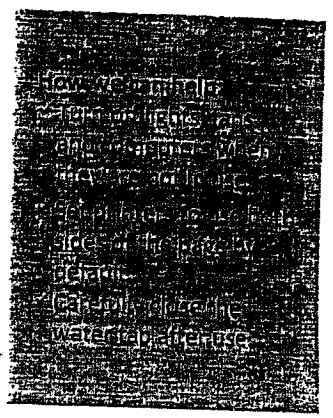 How we can help:
Turn off lights, fans
and computers when
they are not in use
Set printers to use both
sides of the page by
default
Carefully close the
water tap after use